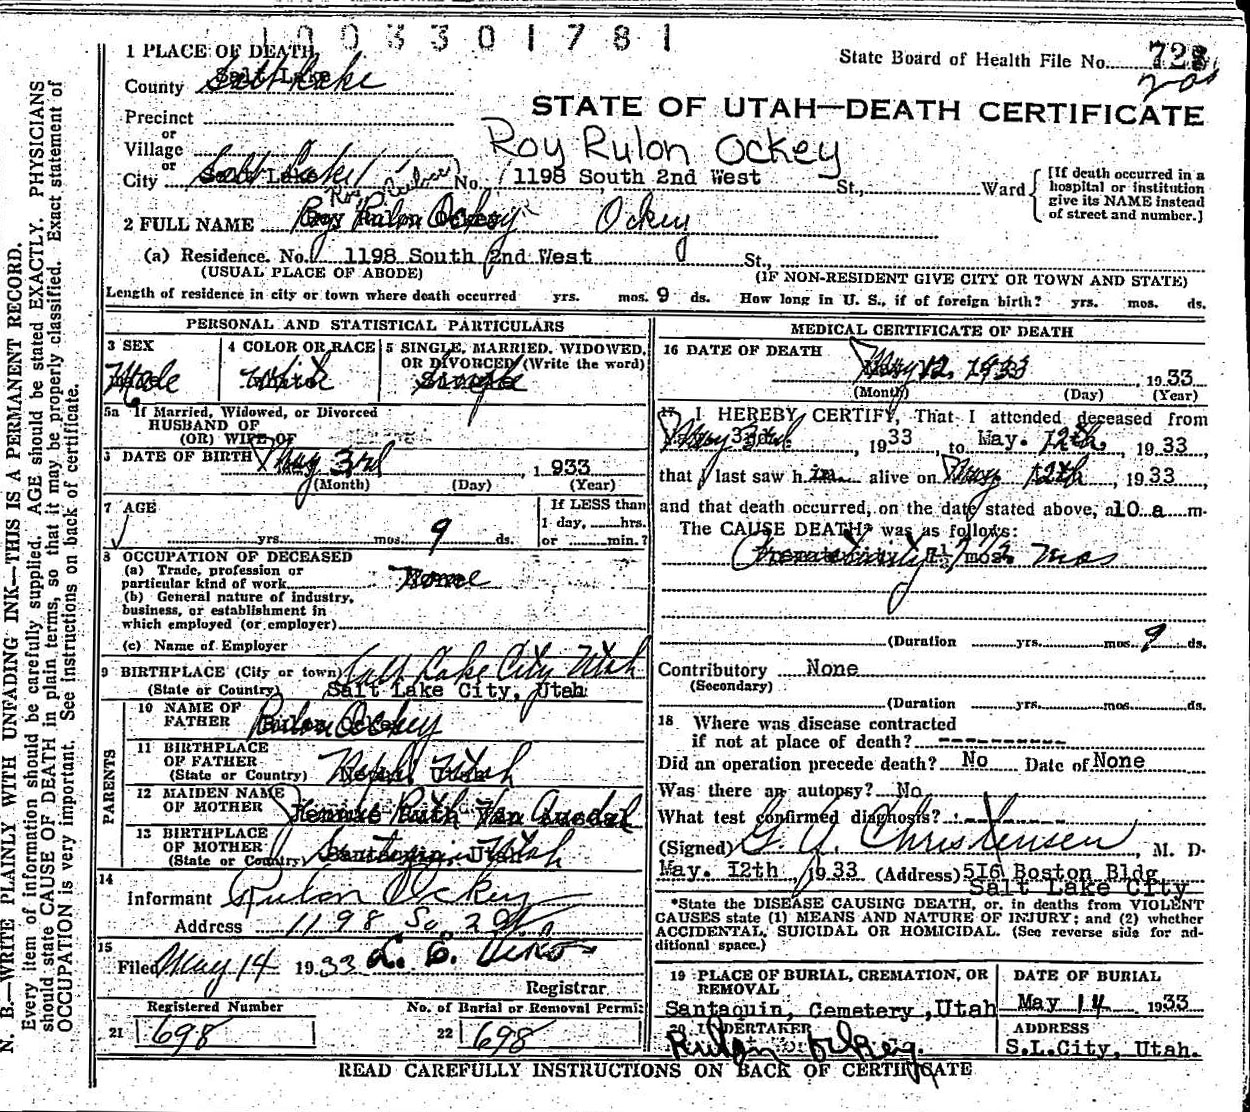 1003301781
State Board of Health File No. 728
STATE OF UTAH—DEATH CERTIFICATE
1 PLACE OF DEATH
County Salt Lake
Precinct
or
Village
or
City Salt Lake No. 1198 South 2nd West St., Ward
[If death occurred in a hospital or institution give its NAME instead of street and number.]
Roy Rulon Ockey
2 FULL NAME Roy Rulon Ockey Ockey
(a) Residence. No. 1198 South 2nd West St.,
(USUAL PLACE OF ABODE) (IF NON-RESIDENT GIVE CITY OR TOWN AND STATE)
Length of residence in city or town where death occurred yrs. mos. 9 ds. How long in U. S., if of foreign birth? yrs. mos. ds.
N. B.—WRITE PLAINLY WITH UNFADING INK—THIS IS A PERMANENT RECORD.
Every item of information should be carefully supplied. AGE should be stated EXACTLY. PHYSICIANS
should state CAUSE OF DEATH in plain terms, so that it may be properly classified. Exact statement of
OCCUPATION is very important. See instructions on back of certificate.
PERSONAL AND STATISTICAL PARTICULARS
3 SEX Male
4 COLOR OR RACE White
5 SINGLE, MARRIED, WIDOWED, OR DIVORCED (Write the word) Single
5a If Married, Widowed, or Divorced
HUSBAND OF
(OR) WIFE OF
6 DATE OF BIRTH May 3rd 1933
(Month) (Day) (Year)
7 AGE yrs. mos. 9 ds.
If LESS than
1 day, hrs.
or min.?
8 OCCUPATION OF DECEASED
(a) Trade, profession or
particular kind of work None
(b) General nature of industry,
business, or establishment in
which employed (or employer)
(c) Name of Employer
9 BIRTHPLACE (City or town) Salt Lake City Utah
(State or Country) Salt Lake City, Utah
PARENTS
10 NAME OF FATHER Rulon Ockey
11 BIRTHPLACE OF FATHER (State or Country) Nephi Utah
12 MAIDEN NAME OF MOTHER Ruth Van Ausdal
13 BIRTHPLACE OF MOTHER (State or Country) Santaquin, Utah
14
Informant Rulon Ockey
Address 1198 So. 2 W
15
Filed May 14 1933
Registrar
Registered Number
21 698
No. of Burial or Removal Permit
22 698
MEDICAL CERTIFICATE OF DEATH
16 DATE OF DEATH May 12. 1933 1933
(Month) (Day) (Year)
17 I HEREBY CERTIFY, That I attended deceased from
May 3rd, 1933, to May. 12th, 1933,
that I last saw h im alive on May 12th, 1933,
and that death occurred, on the date stated above, a 10 a m.
The CAUSE DEATH* was as follows:
Prematurity 7½ mos. mos
(Duration yrs. mos. 9 ds.
Contributory None
(Secondary)
(Duration yrs. mos. ds.
18 Where was disease contracted
if not at place of death? ----------
Did an operation precede death? No Date of None
Was there an autopsy? No
What test confirmed diagnosis? ----------
(Signed) G. A. Christensen, M. D.
May. 12th 1933 (Address) 516 Boston Bldg
Salt Lake City
*State the DISEASE CAUSING DEATH, or, in deaths from VIOLENT
CAUSES state (1) MEANS AND NATURE OF INJURY; and (2) whether
ACCIDENTAL, SUICIDAL OR HOMICIDAL. (See reverse side for ad-
ditional space.)
19 PLACE OF BURIAL, CREMATION, OR REMOVAL
Santaquin, Cemetery ,Utah
DATE OF BURIAL
May 14 1933
20 UNDERTAKER
Rulon Ockey.
ADDRESS
S.L.City, Utah.
READ CAREFULLY INSTRUCTIONS ON BACK OF CERTIFICATE